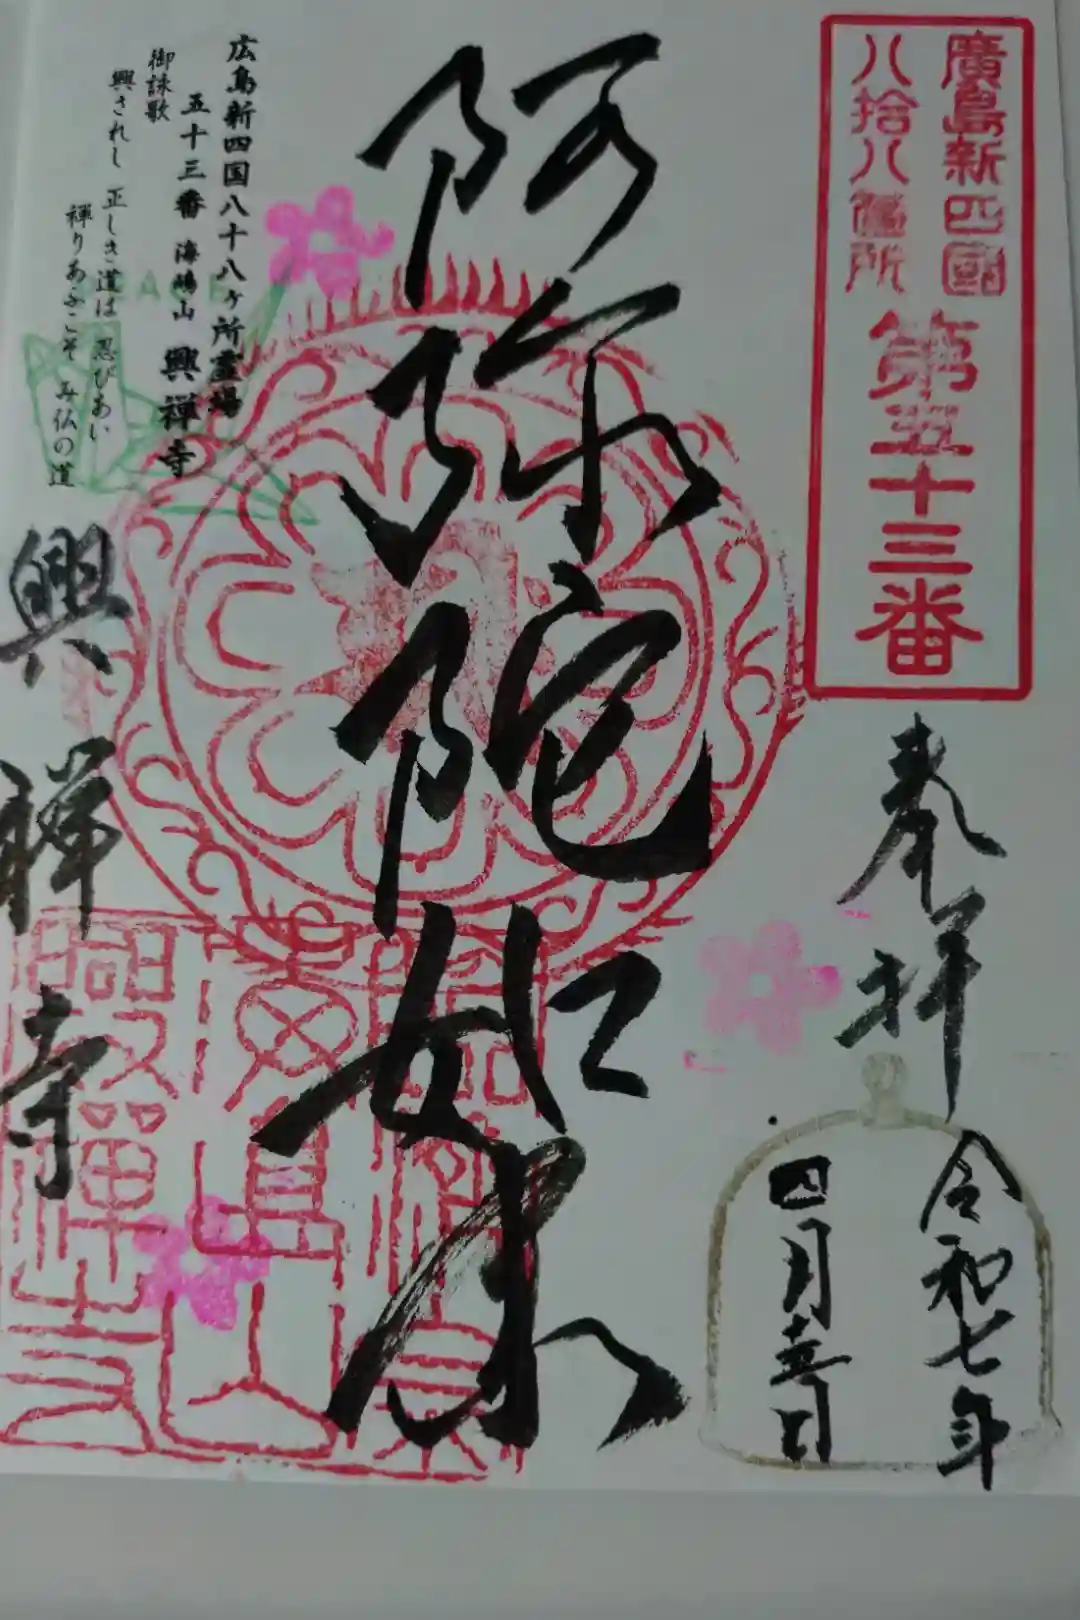 廣島新四國
八拾八所
第五十三番
奉拝
令和七年
四月日
阿弥陀如来
広島新四国八十八ヶ所霊場
五十三番 海嶋山 興禅寺
御詠歌
興されし 正しき道は 忍びあい
禅りあふこそ み仏の道
興禅寺